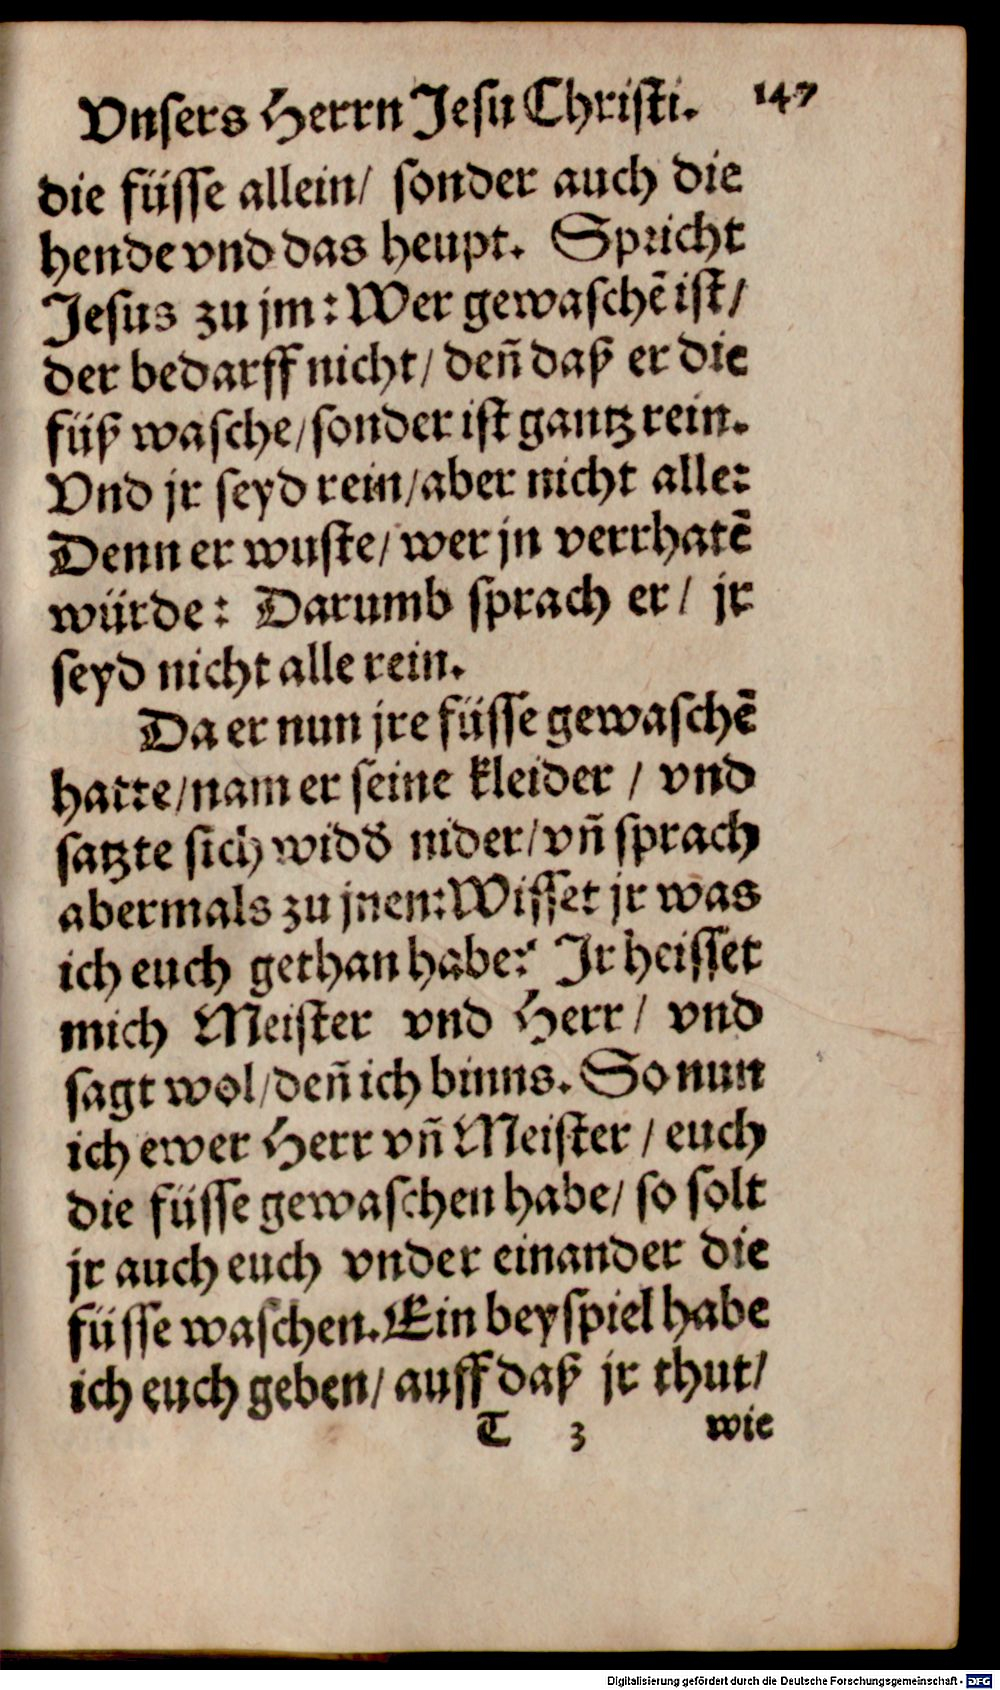 Vnsers Herrn Jesu Christi. 147
die füsse allein/ sonder auch die
hende vnd das heupt. Spricht
Jesus zu jm: Wer gewaschē ist/
der bedarff nicht/ deñ daß er die
füß wasche/ sonder ist gantz rein.
Vnd jr seyd rein/ aber nicht alle:
Denn er wuste/ wer jn verrhatē
würde: Darumb sprach er/ jr
seyd nicht alle rein.
Da er nun jre füsse gewaschē
hatte/ nam er seine kleider / vnd
satzte sich widď nider/ vñ sprach
abermals zu jnen: Wisset jr was
ich euch gethan habe? Jr heisset
mich Meister vnd Herr/ vnd
sagt wol/ deñ ich binns. So nun
ich ewer Herr vñ Meister / euch
die füsse gewaschen habe/ so solt
jr auch euch vnder einander die
füsse waschen. Ein beyspiel habe
ich euch geben/ auff daß jr thut/
T 3 wie
Digitalisierung gefördert durch die Deutsche Forschungsgemeinschaft - DFG